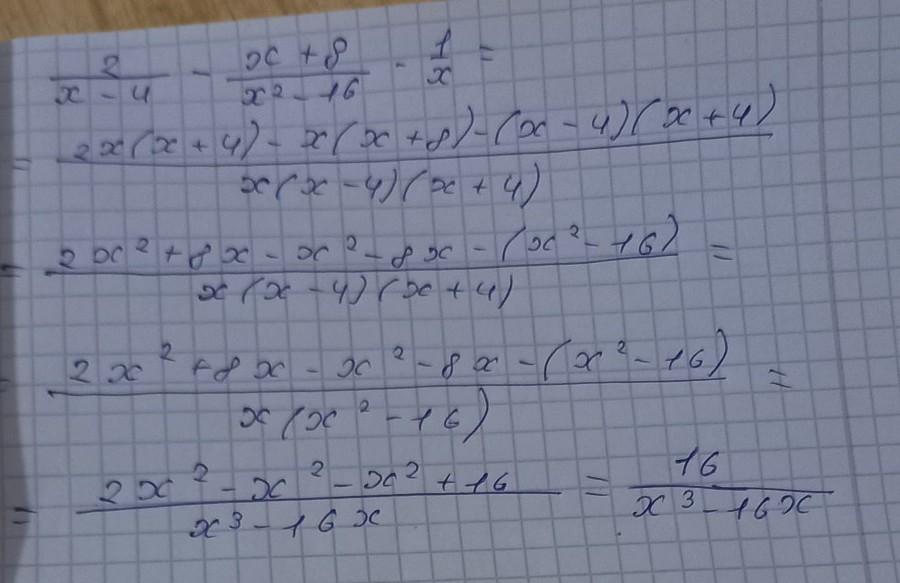 2/(x - 4) - (x + 8)/(x² - 16) - 1/x =
= (2x(x + 4) - x(x + 8) - (x - 4)(x + 4))/(x(x - 4)(x + 4))
= (2x² + 8x - x² - 8x - (x² - 16))/(x(x - 4)(x + 4)) =
= (2x² + 8x - x² - 8x - (x² - 16))/(x(x² - 16)) =
= (2x² - x² - x² + 16)/(x³ - 16x) = 16/(x³ - 16x)